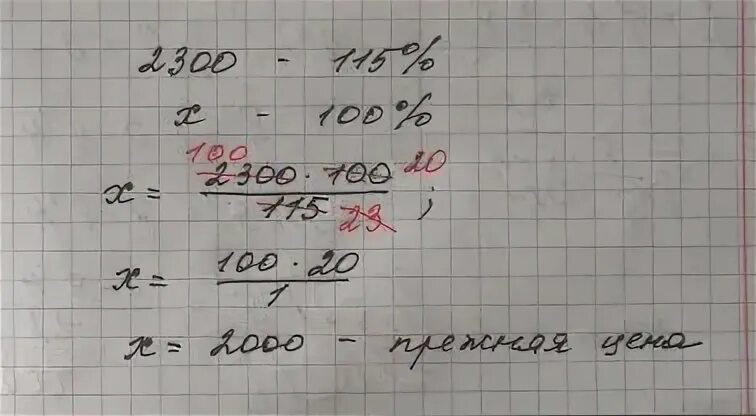 2300 - 115%
x - 100%
100 20
x = 2300 · 100 / 115 23 ;
x = 100 · 20 / 1
x = 2000 - прежная цена